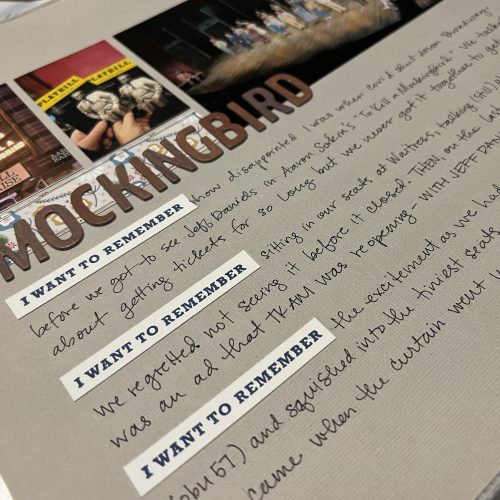 PLAYBILL PLAYBILL
MOCKINGBIRD
I WANT TO REMEMBER how disappointed I was when Covid shut down Broadway
before we got to see Jeff Daniels in Aaron Sorkin's "To Kill a Mockingbird." We talked
about getting tickets for so long but we never got it together to get
I WANT TO REMEMBER sitting in our seats at Waitress, talking (still)
we regretted not seeing it before it closed. THEN, on the
was an ad that TKAM was reopening - WITH JEFF DAN
I WANT TO REMEMBER the excitement as we
and squished into the tiniest seats
came when the curtain went